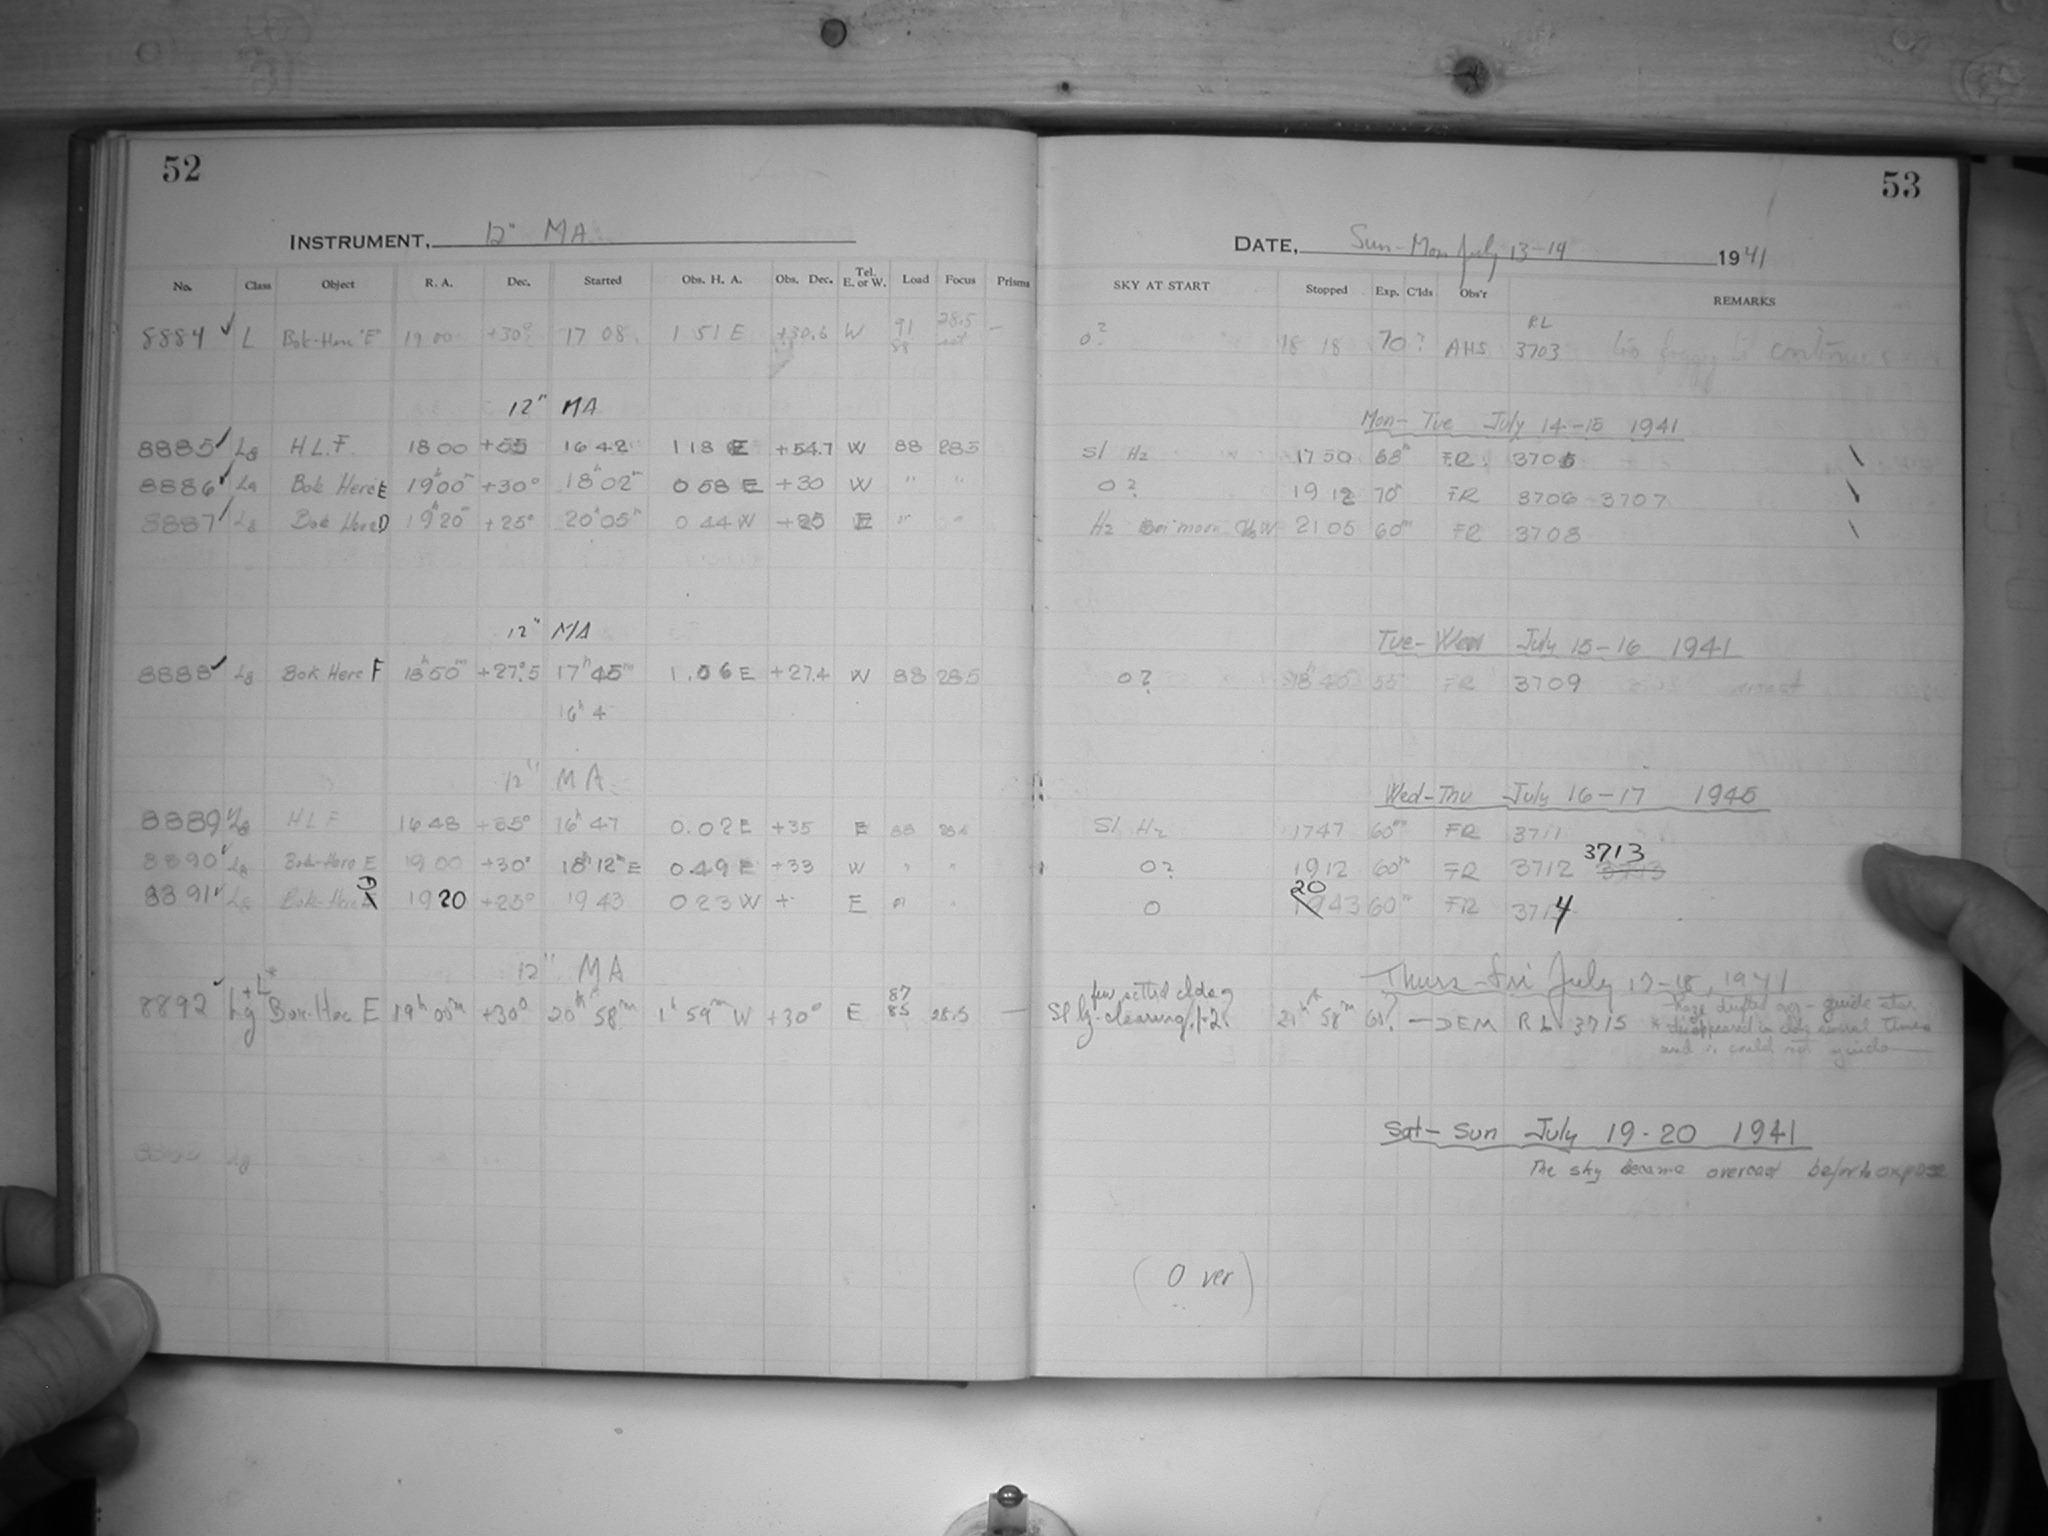 52
53
INSTRUMENT, 12" MA
DATE, Sun-Mon July 13-14 1941
No. Class Object R. A. Dec. Started Obs. H. A. Obs. Dec. Tel. E. or W. Load Focus Prisms SKY AT START Stopped Exp. C'lds Obs'r REMARKS
8884 ✓ L Bok-Herc "E" 19 00 +30° 17 08 1 51 E +30.6 W 91 88 28.5 set — 0? 18 18 70? AHS RL 3703 too foggy to continue
12" MA Mon-Tue July 14-15 1941
8885 ✓ Lg H.L.F 18 00 +55 16 42 1 18 E +54.7 W 88 285 Sl Hz 17 50 68m F.R. 3705 \
8886 ✓ Lg Bok Herc E 19h00m +30° 18h02m 0 58 E +30 W " " 0? 19 12 70m FR 3706-3707 \
8887 / Lg Bok Herc D 19h20m +25° 20h05m 0 44 W +25 E " " Hz moon W 21 05 60m FR 3708 \
12" MA Tue-Wed July 15-16 1941
8888 ✓ Lg Bok Herc F 18h50m +27°.5 17h45m 1.06 E +27.4 W 88 285 0? 55 FR 3709
16h 4
12" MA Wed-Thu July 16-17 1945
8889 ✓ Lg HLF 16 48 +35° 16h47 0.02 E +35 E 88 Sl Hz 1747 60m FR 3711
8890 ✓ Lg Bok-Herc E 19 00 +30° 18h12m E 0.49 E +33 W " " 0? 1912 60m FR 3712 3713
8891 ✓ Lg Bok-Herc D 19 20 +25° 19 43 0 23 W + E " " 0 20 43 60m FR 3714
12" MA Thurs-Fri July 17-18, 1941
8892 ✓ Lg + L* Bok-Herc E 19h 00m +30° 20h 58m 1h 59m W +30° E 87 85 28.5 — few sctted clds Sl hz-clearing. 1-2. 21h 58m 60? — DEM RL 3715 Haze drifted - guide star
* disappeared in several times
and I could not guide
8893 Lg
Sat-Sun July 19-20 1941
The sky became overcast before to expose
(Over)